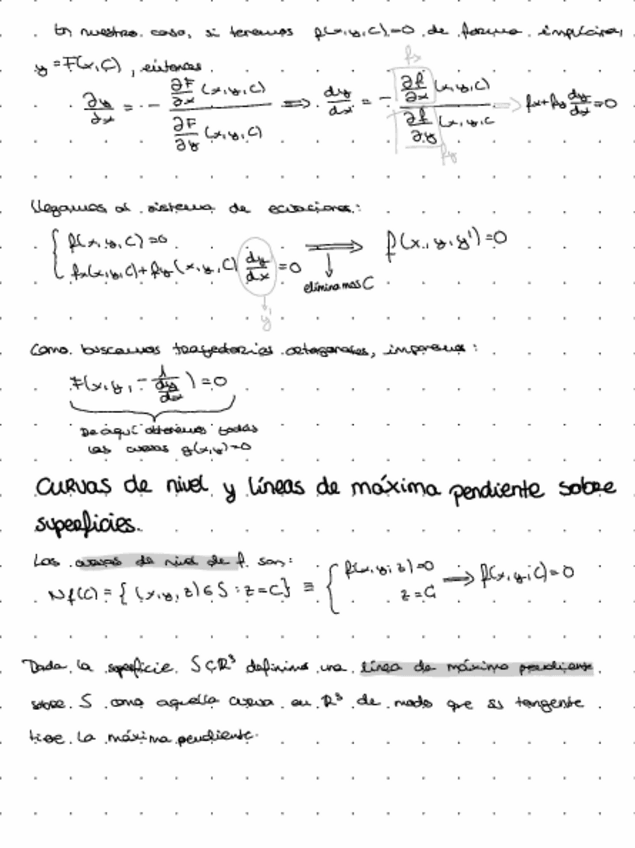 En nuestro caso, si tenemos f(x,y,C)=0 de forma implícita,
y=F(x,C), entonces
∂y/∂x = - ∂F/∂x (x,y,C) / ∂F/∂y (x,y,C) ⟹ dy/dx = - ∂f/∂x (x,y,C) / ∂f/∂y (x,y,C → fx+fy dy/dx=0
fx
fy
llegamos al sistema de ecuaciones:
{ f(x,y,C)=0
fx(x,y,C)+fy(x,y,C) dy/dx =0 ⟹ f(x,y,y')=0
eliminamos C
y'
Como buscamos trayectorias ortogonales, imponemos:
F(x,y,- 1/(dy/dx))=0
De aquí obtenemos todas
las curvas g(x,y)=0
CURVAS de nivel y líneas de máxima pendiente sobre
superficies.
Las curvas de nivel de f son:
Nf(C)={(x,y,z)∈S:z=C} ≡ { f(x,y,z)=0
z=C ⟹ f(x,y,C)=0
Dada la superficie S⊂R³ definimos una línea de máxima pendiente
sobre S como aquella curva en R³ de modo que su tangente
tiene la máxima pendiente.